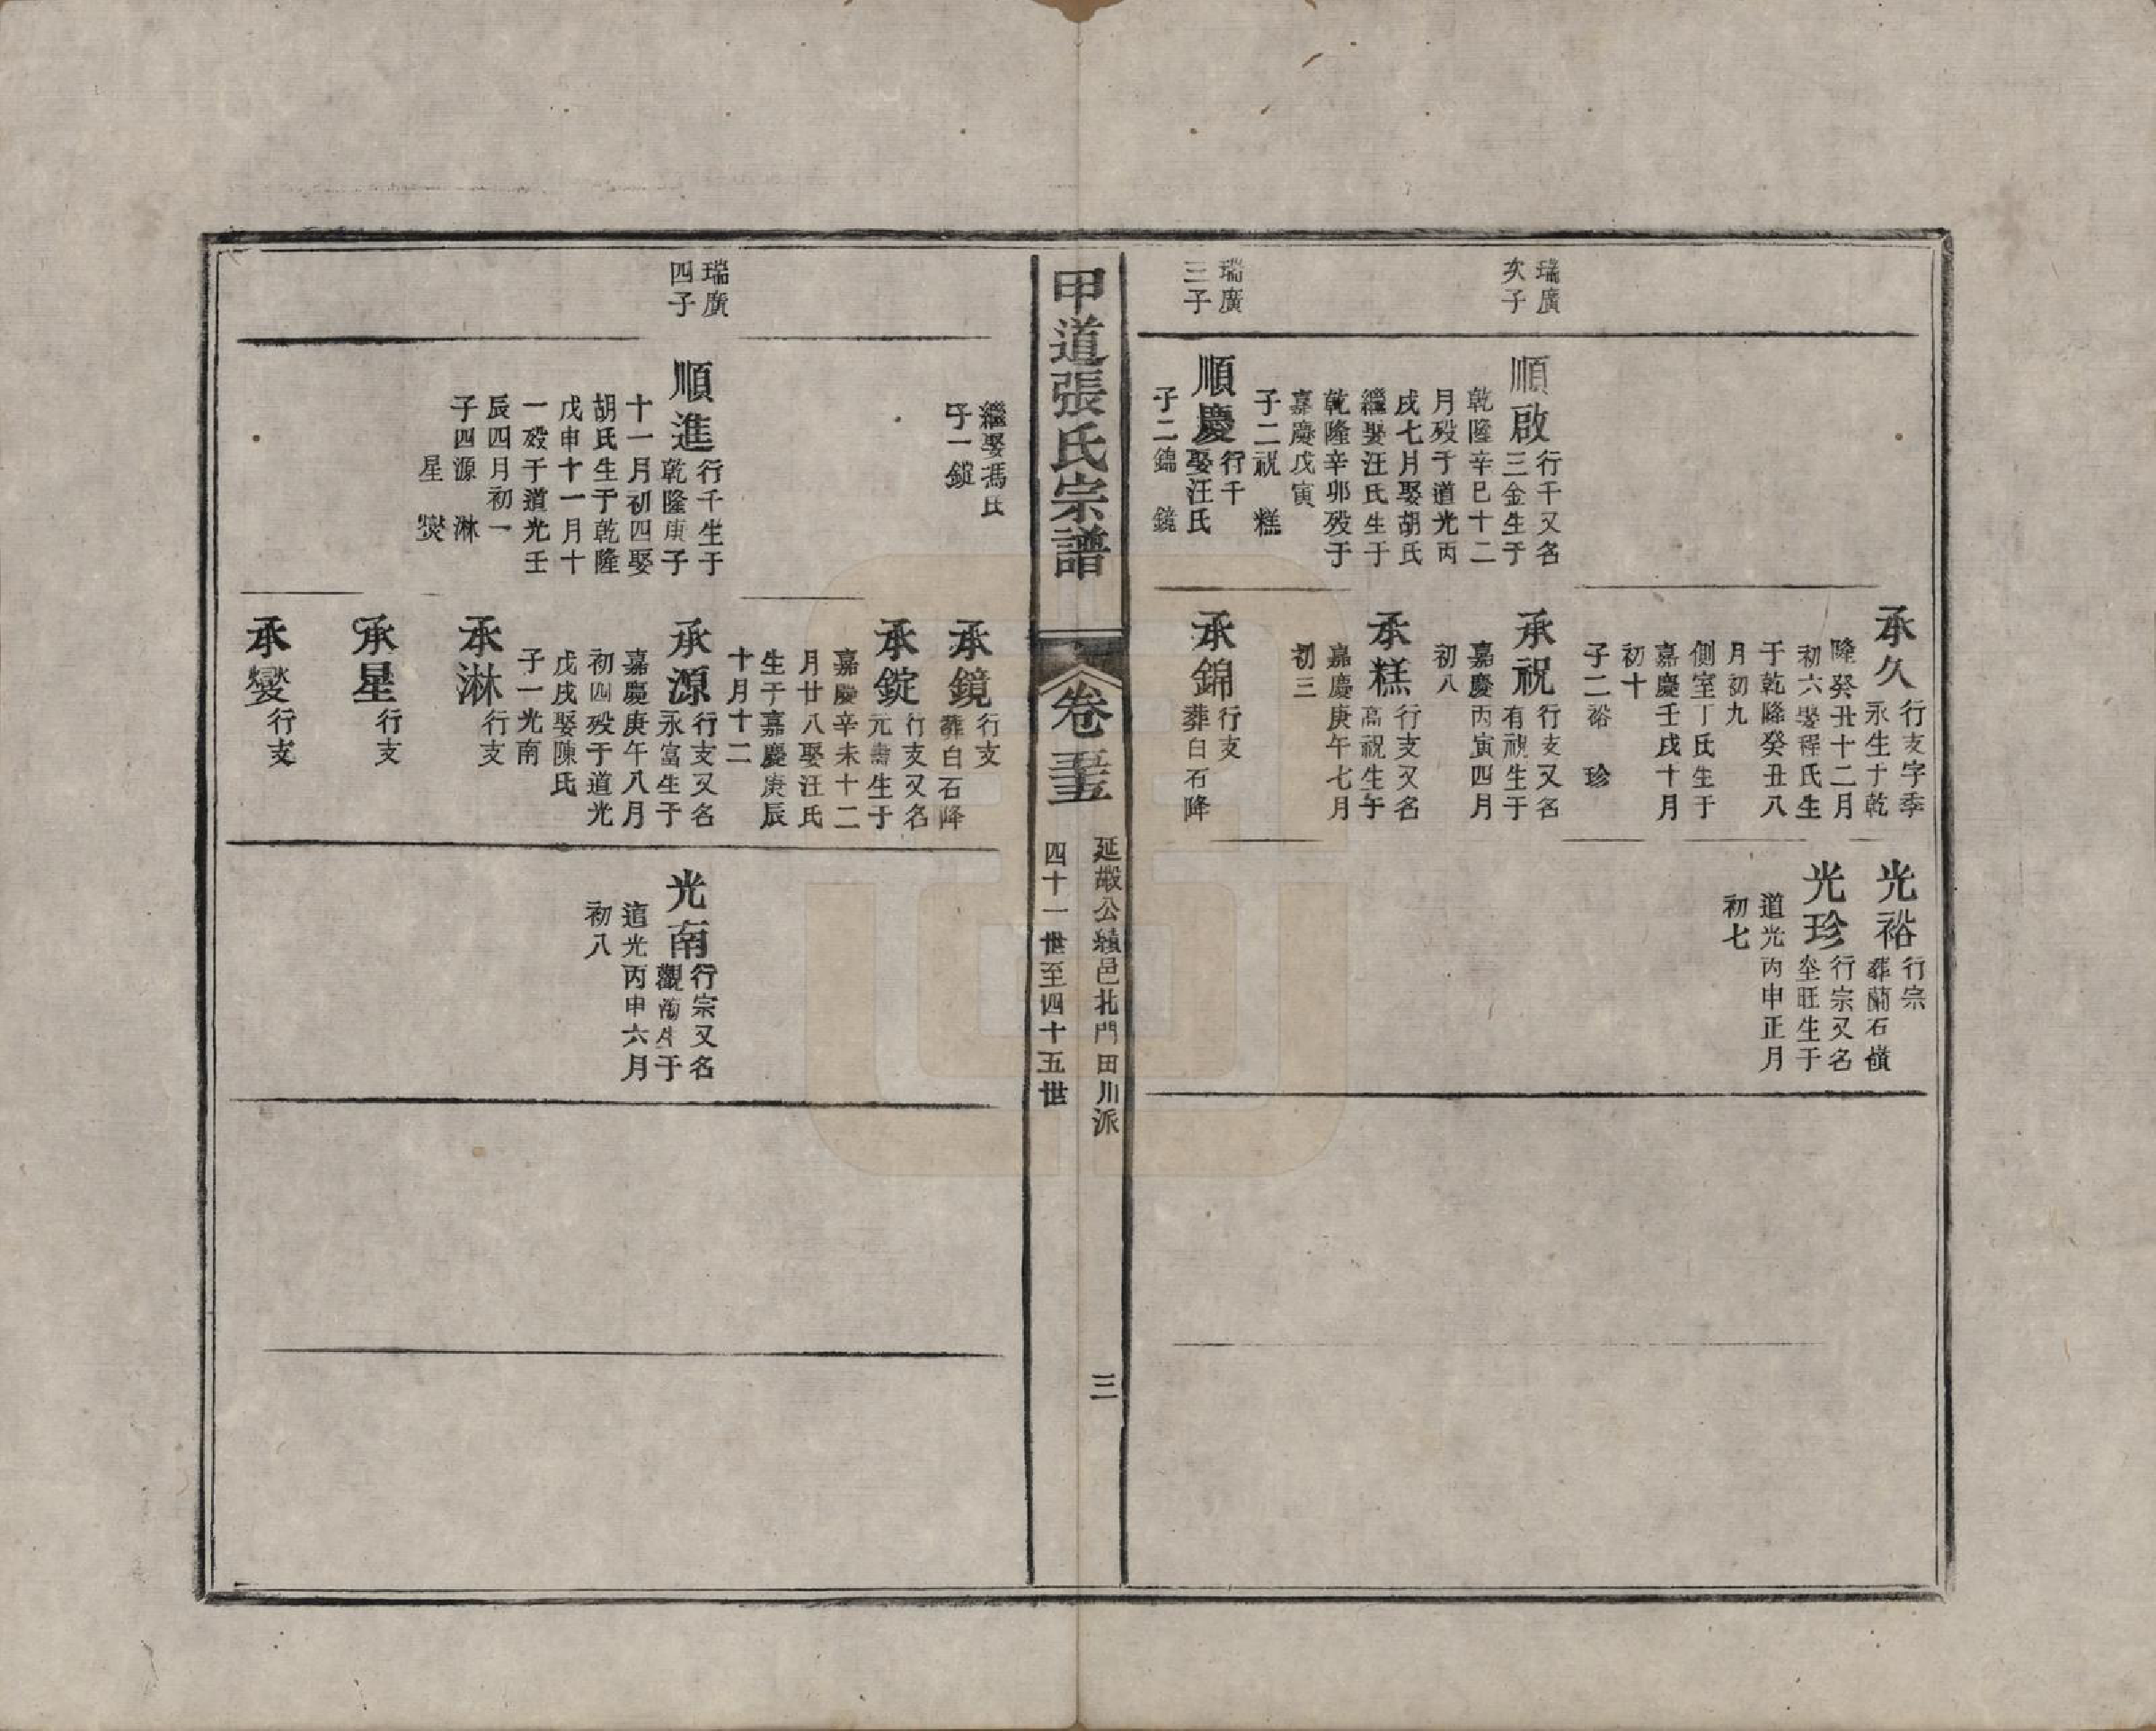 瑞廣
次子
瑞廣
三子
順啟
行千又名
三金生于
乾隆辛巳十二
月歿于道光丙
戌七月娶胡氏
繼娶汪氏生于
乾隆辛卯歿于
嘉慶戊寅
子二祝 糕
順慶
行千
娶汪氏
子二錦 鏡
承久
行支字季
永生于乾
隆癸丑十二月
初六娶程氏生
于乾隆癸丑八
月初九
側室丁氏生于
嘉慶壬戌十月
初十
子二裕 珍
承祝
行支又名
有祝生于
嘉慶丙寅四月
初八
承糕
行支又名
高祝生于
嘉慶庚午七月
初三
承錦
行支
葬白石降
光裕
行宗
葬蘭石嶺
光珍
行宗又名
坌旺生于
道光丙申正月
初七
甲道張氏宗譜
卷
延嘏公績邑北門田川派
四十一世至四十五世
三
瑞廣
四子
繼娶馮氏
子一錠
順進
行千生于
乾隆庚子
十一月初四娶
胡氏生于乾隆
戊申十一月十
一歿于道光壬
辰四月初一
子四源 淋
星 燮
承鏡
行支
葬白石降
承錠
行支又名
元壽生于
嘉慶辛未十二
月廿八娶汪氏
生于嘉慶庚辰
十月十二
承源
行支又名
永富生于
嘉慶庚午八月
初四歿于道光
戊戌娶陳氏
子一光南
承淋
行支
承星
行支
承燮
行支
光南
行宗又名
觀南生于
道光丙申六月
初八